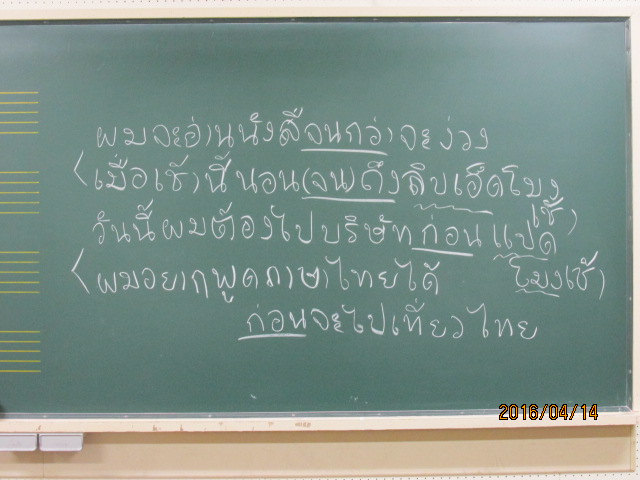 ผมจะอ่านนังสือจนกว่าจะง่วง
เมื่อเช้านี้นอน(จน)ถึงสิบเอ็ดโมง
เช้า
วันนี้ผมต้องไปบริษัทก่อนแปด
โมงเช้า
ผมอยากพูดภาษาไทยได้
ก่อนจะไปเที่ยวไทย
2016/04/14